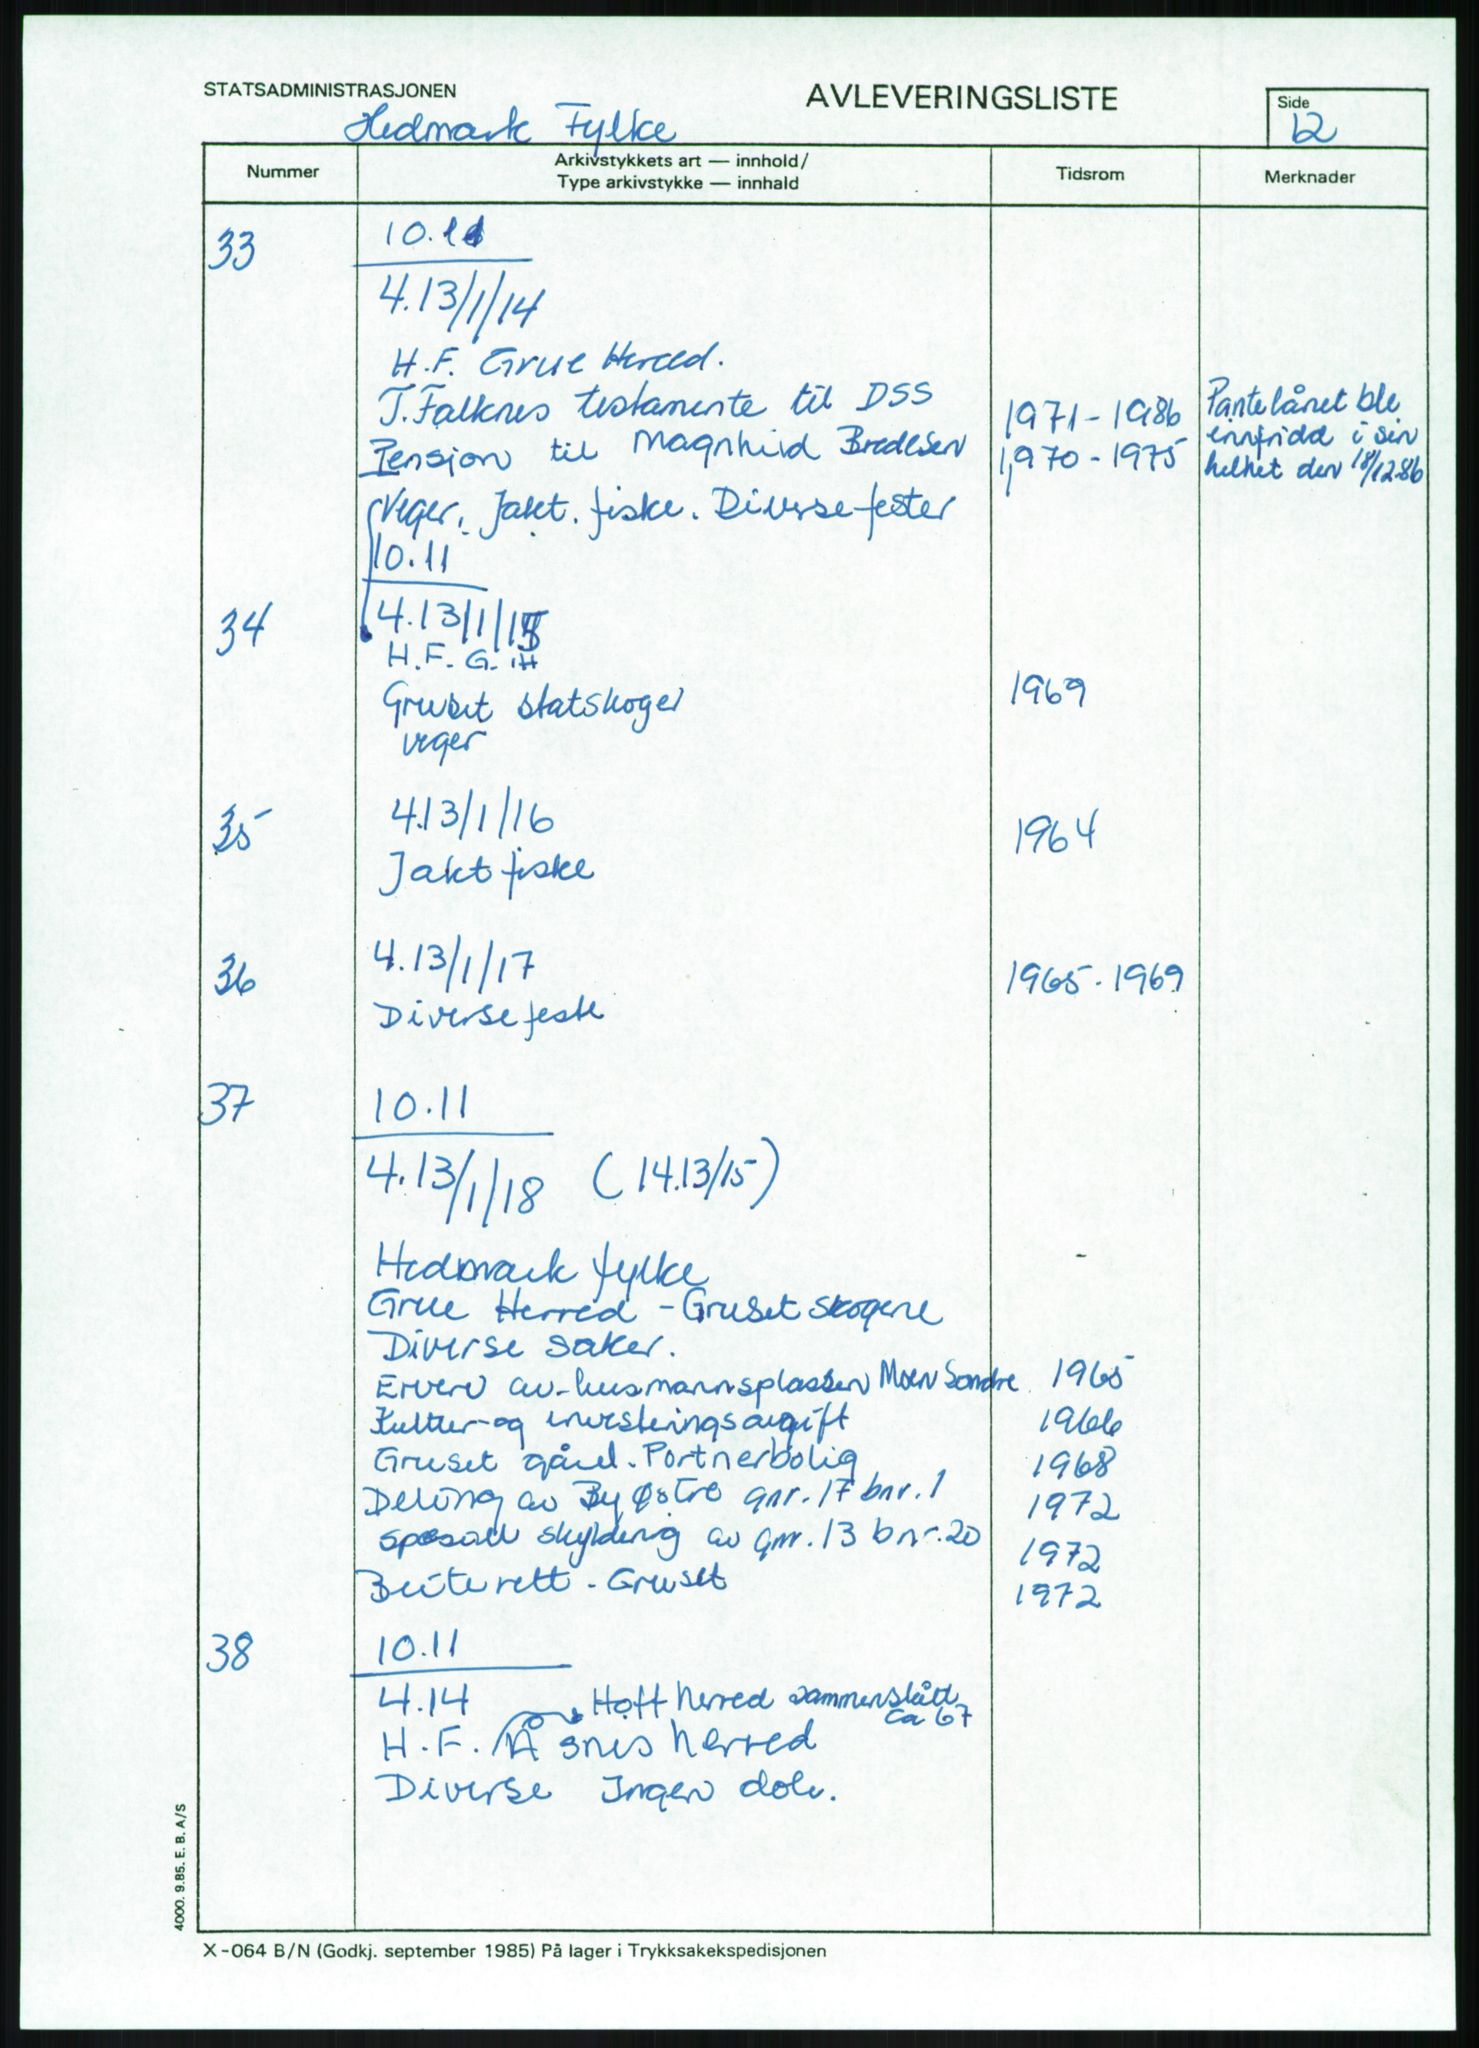 STATSADMINISTRASJONEN
AVLEVERINGSLISTE
Side
12
Hedmark Fylke
Nummer
Arkivstykkets art — innhold/
Type arkivstykke — innhald
Tidsrom
Merknader
33
10.11
4.13/1/14
H.F. Grue Herred.
T. Falknes testamente til DSS 1971-1986
Pensjon til Magnhild Bredesen 1970-1975
Pantelånet ble
innfridd i sin
helhet den 18/12-86
Veger, Jakt. fiske. Diverse fester
10.11
34
4.13/1/15
H.F. G. H
Gruset statskoger 1969
veger
35
4.13/1/16 1964
Jakt fiske
36
4.13/1/17 1965-1969
Diverse feste
37
10.11
4.13/1/18 (14.13/15)
Hedmark fylke
Grue Herred - Gruset skogene
Diverse saker.
Erverv av husmannsplassen Moen Søndre 1965
Kultur- og investeringsavgift 1966
Gruset gård. Portnerbolig 1968
Deling av By Østre gnr. 17 bnr. 1 1972
spesiell skylddeling av gnr. 13 bnr. 20 1972
Beiterett - Gruset 1972
38
10.11
4.14
Hoff herred sammenslått
ca 67
H.F. Åsnes herred
Diverse Ingen dok.
4000. 9.85. E. B. A/S
X-064 B/N (Godkj. september 1985) På lager i Trykksakekspedisjonen